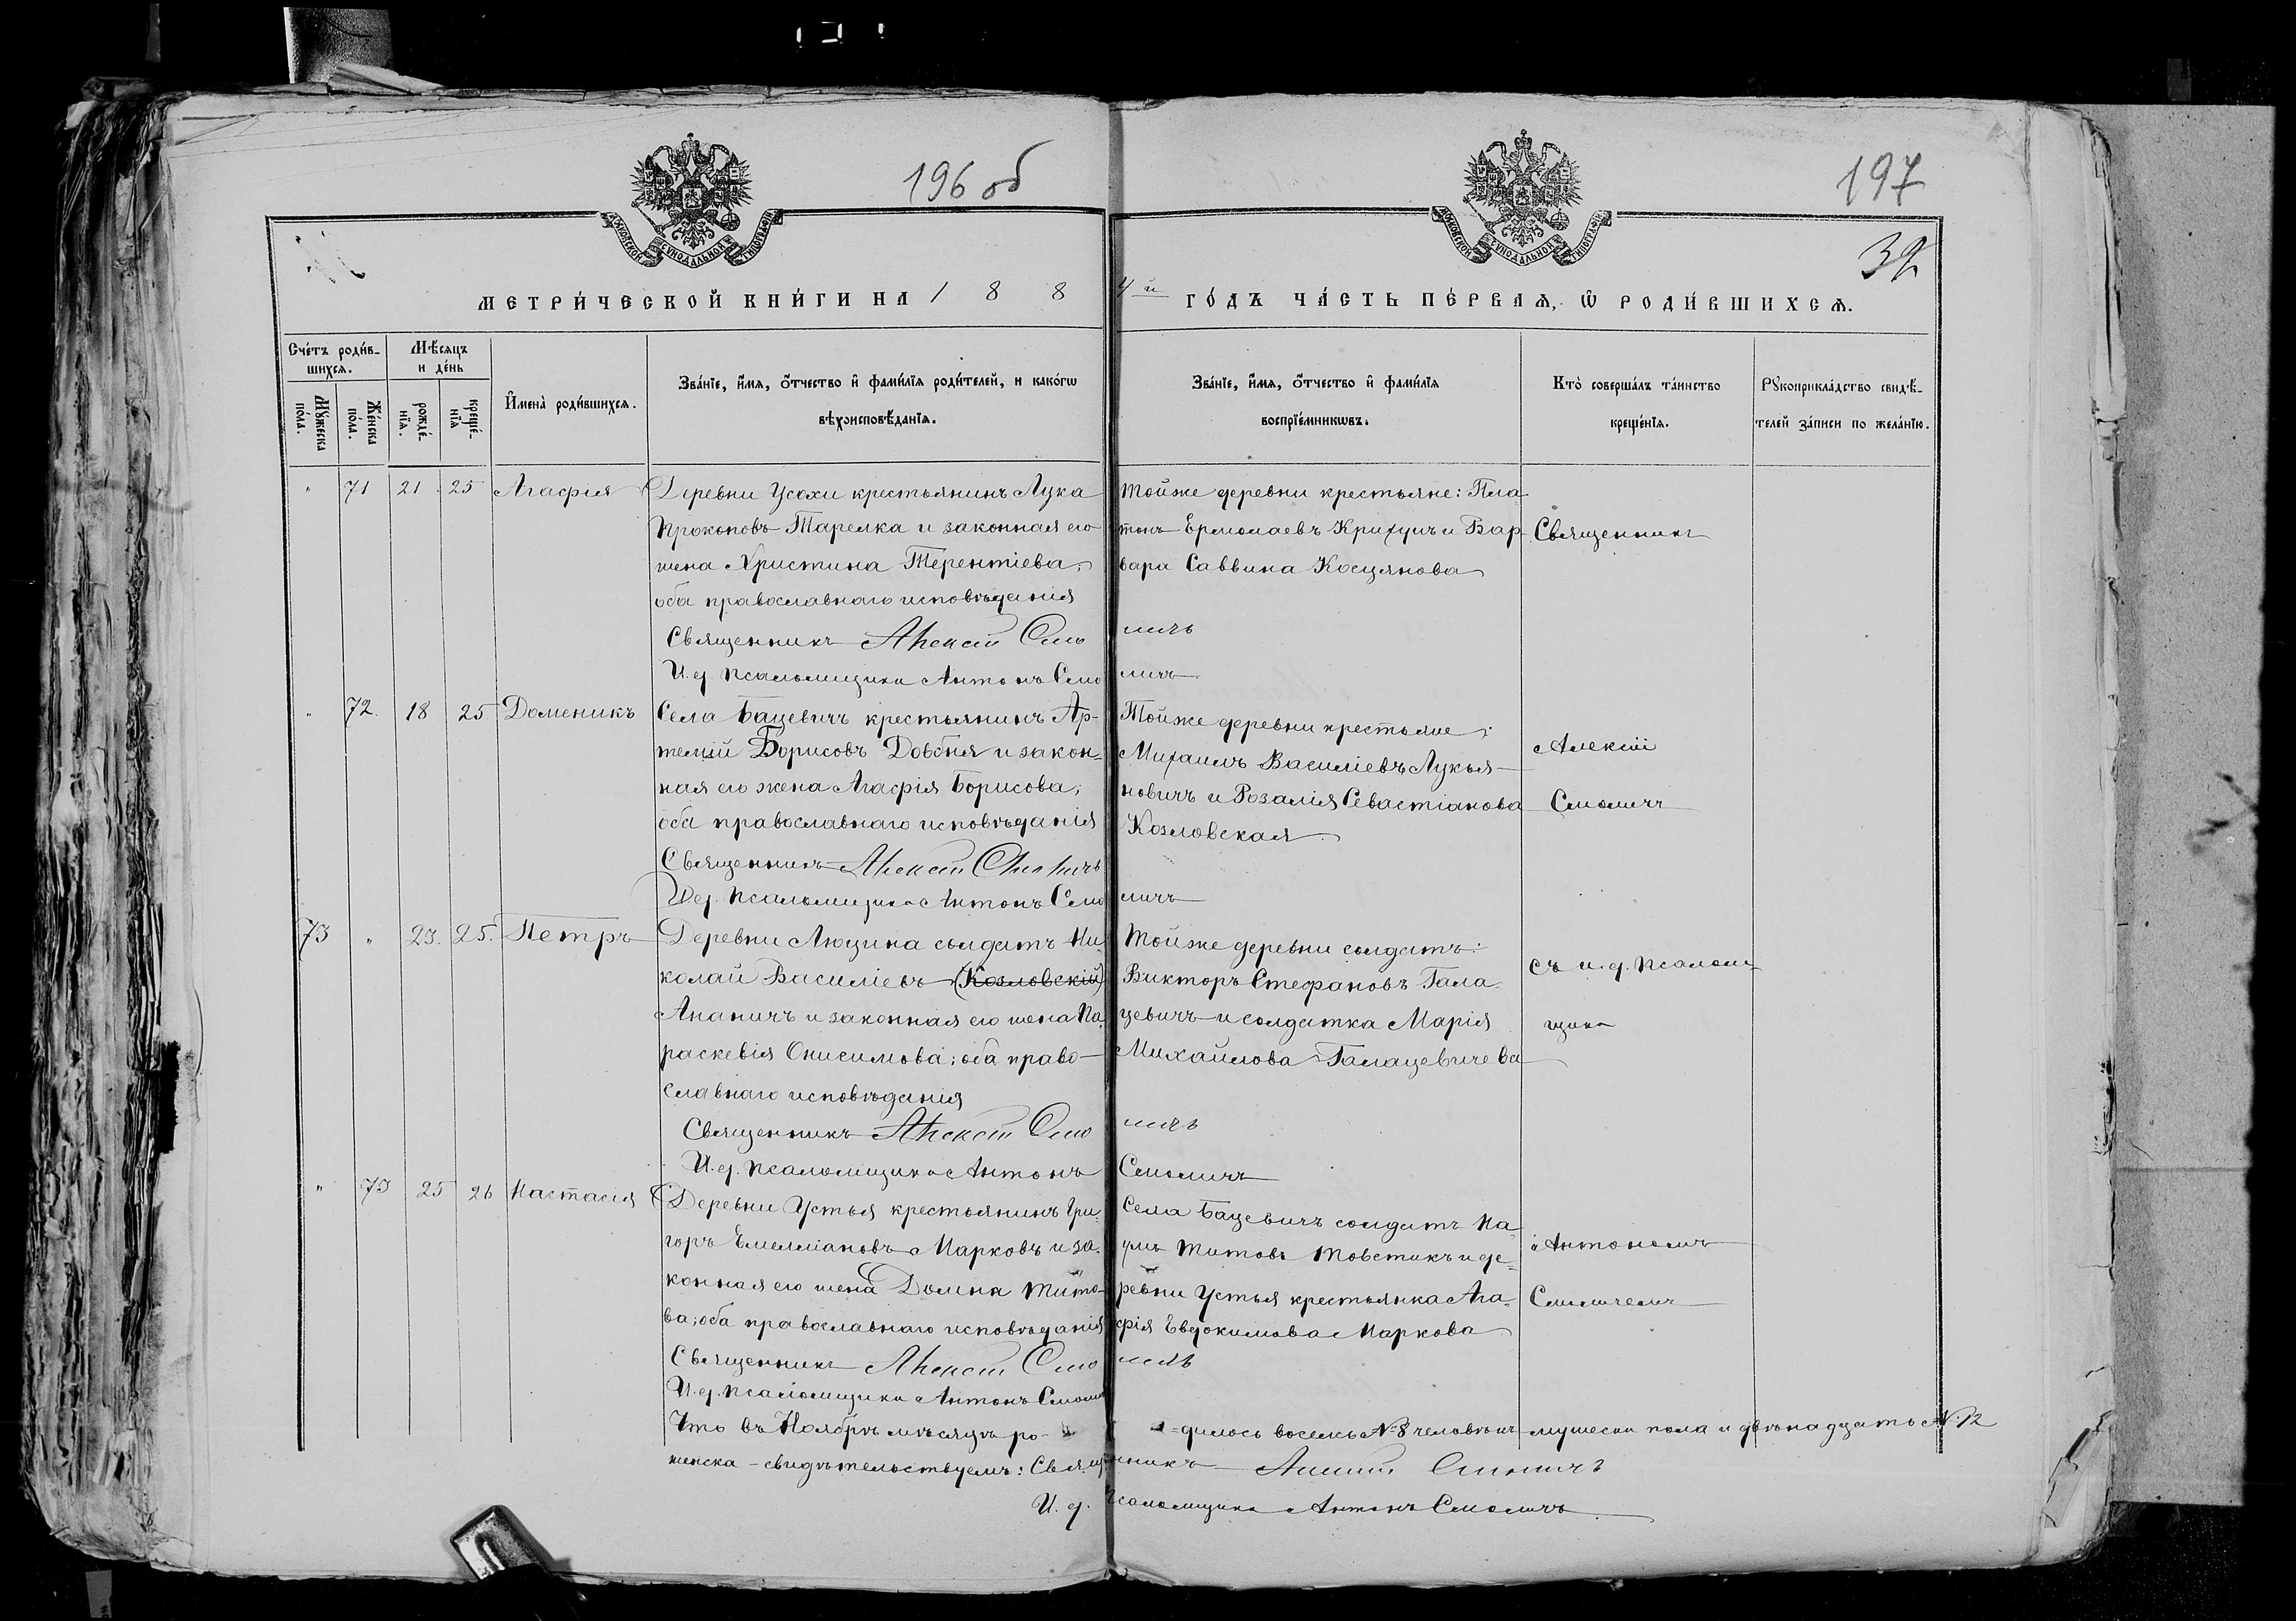 196 об
197
32
МОСКОВСКОЙ СѴНОДАЛЬНОЙ ТИПОГРАФІИ
МОСКОВСКОЙ СѴНОДАЛЬНОЙ ТИПОГРАФІИ
МЕТРИ́ЧЕСКОЙ КНИ́ГИ НА 1 8 8 4й ГО́ДЪ ЧА́СТЬ ПЕ́РВАѦ, Ѡ РОДИ́ВШИХСѦ.
Сче́тъ роди́в-
шихсѧ.
Мꙋ́жеска
по́ла.
Же́нска
по́ла.
Мѣ́сѧцъ
и де́нь
рожде́-
нїѧ.
креще́-
нїѧ
И҆мена̀ роди́вшихсѧ.
Зва́нїе, и҆́мѧ, ѻ҆́тчество и҆ фами́лїѧ роди́телей, и како́гѡ
вѣроисповѣ́данїѧ.
Зва́нїе, и҆́мѧ, ѻ҆́тчество и҆ фами́лїѧ
воспрїе́мникѡвъ.
Кто̀ соверша́лъ та́инство
креще́нїѧ.
Рꙋкоприкла́дство свидѣ́-
телей за́писи по жела́нїю.
" 71 21 25 Агафія
Деревни Усохи крестьянинъ Лука
Прокоповъ Тарелка и законная его
жена Христина Терентіева,
оба православнаго исповѣданія
Священникъ Алексій Смо
И. д. псаломщика Антонъ Смо
Тойже деревни крестьяне: Пла
тонъ Ермолаевъ Крихунъ и Вар
вара Саввина Косцянова
личъ
личъ
" 72. 18 25 Доменикъ
Села Бацевичъ крестьянинъ Ар-
темій Борисовъ Довбня и закон-
ная его жена Агафія Борисова;
оба православнаго исповѣданія
Священникъ Алексій Смоличъ
И. д. псаломщика Антонъ Смо
Тойже деревни крестьяне:
Михаилъ Василіевъ Лукья-
новичъ и Розалія Севастіанова
Козловская
личъ
73 " 23. 25. Петръ
Деревни Люцина солдатъ Ни-
колай Василіевъ (Козловскій)
Ананичъ и законная его жена Па
раскевія Онисимова; оба право-
славнаго исповѣданія
Священникъ Алексій Смо
И. д. псаломщика Антонъ
Тойже деревни солдатъ:
Викторъ Стефановъ Гала-
цевичъ и солдатка Марія
Михайлова Галацевичева
личъ
Смоличъ
" 73 25 26 Настасія
Деревни Устья крестьянинъ Гри-
горъ Емеліановъ Марковъ и за-
конная его жена Домна Тито-
ва; оба православнаго исповѣданія
Священникъ Алексій Смо
И. д. псаломщика Антонъ Смоли
Села Бацевичъ солдатъ На
умъ Титовъ Товстикъ и де-
ревни Устья крестьянка Ага-
фія Евдокимова Маркова
личъ
Священникъ
Алексій
Смоличъ
съ и. д. псалом-
щика
Антономъ
Смоличемъ
Что въ Ноябрѣ мѣсяцѣ ро- -дилось восемь №8 человѣкъ мужеска пола и двѣнадцать №12
женска - свидѣтельствуемъ: Священникъ Алексій Смоличъ
И. д. псаломщика Антонъ Смоличъ